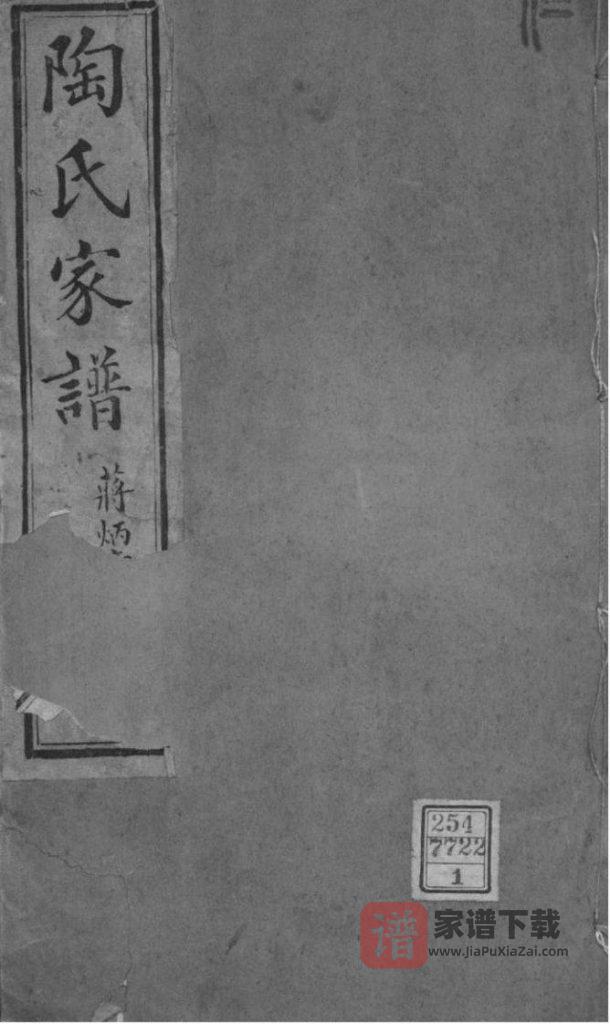 陶氏家譜
蔣炳
254
7722
1
谱
家谱下载
www.JiaPuXiaZai.com